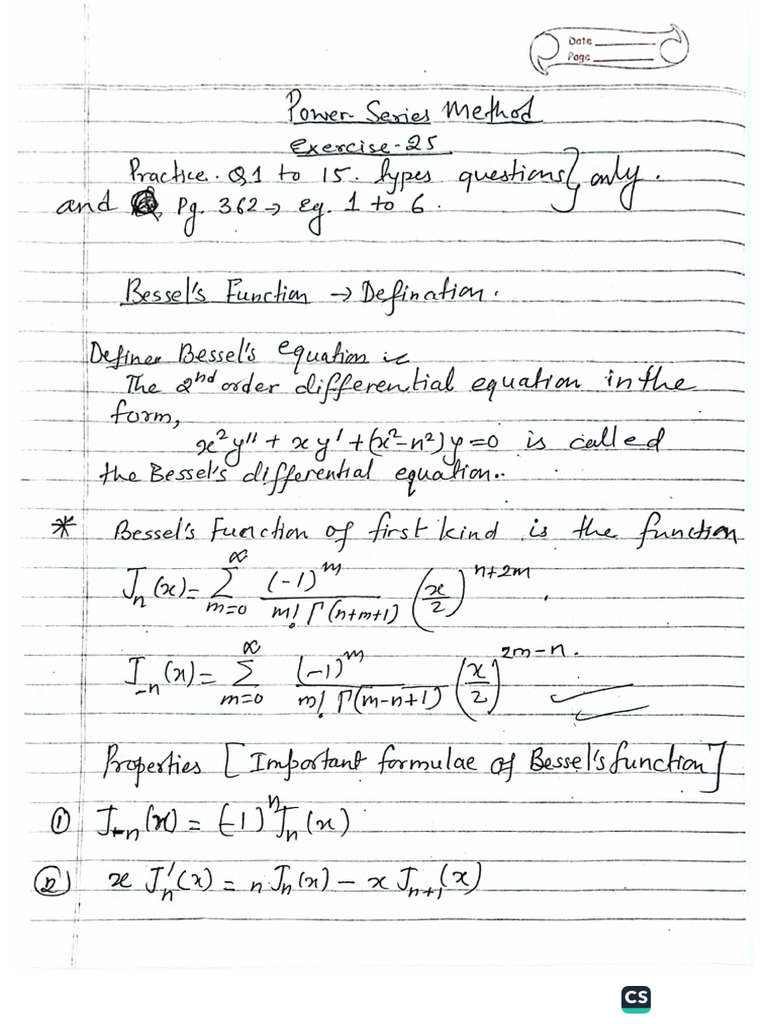 Date
Page
Power Series Method
Exercise-25
Practice. Q1 to 15. types questions } only.
and Pg. 362 → eg. 1 to 6.
Bessel's Function → Defination.
Defines Bessel's equation is
The 2nd order differential equation in the
form,
x²y'' + xy' + (x²-n²)y = 0 is called
the Bessel's differential equation..
* Bessel's Function of first kind is the function
J_n(x) = ∑_{m=0}^{∞} (-1)^m / (m! Γ(n+m+1)) (x/2)^{n+2m}.
J_{-n}(x) = ∑_{m=0}^{∞} (-1)^m / (m! Γ(m-n+1)) (x/2)^{2m-n}.
Properties [Important formulae of Bessel's function]
① J_{-n}(x) = (-1)^n J_n(x)
② x J_n'(x) = n J_n(x) - x J_{n+1}(x)
CS